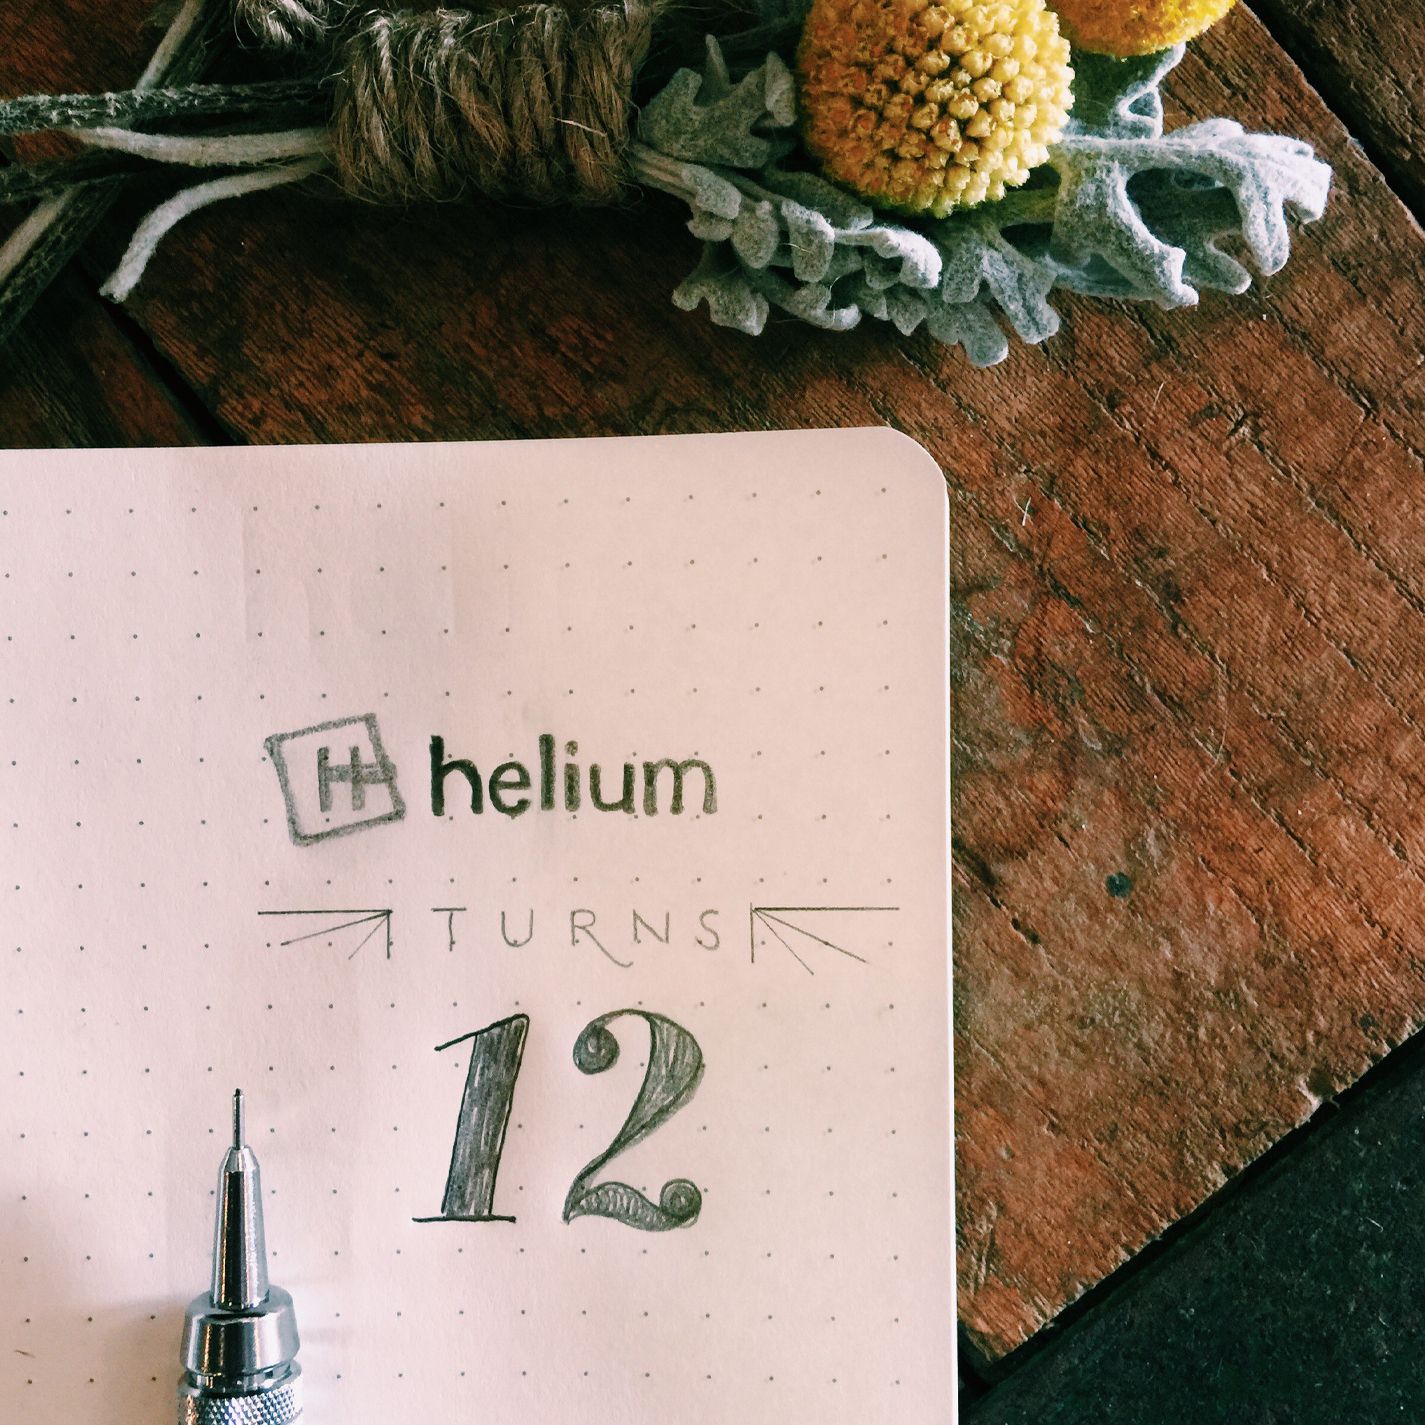 H helium
TURNS
12